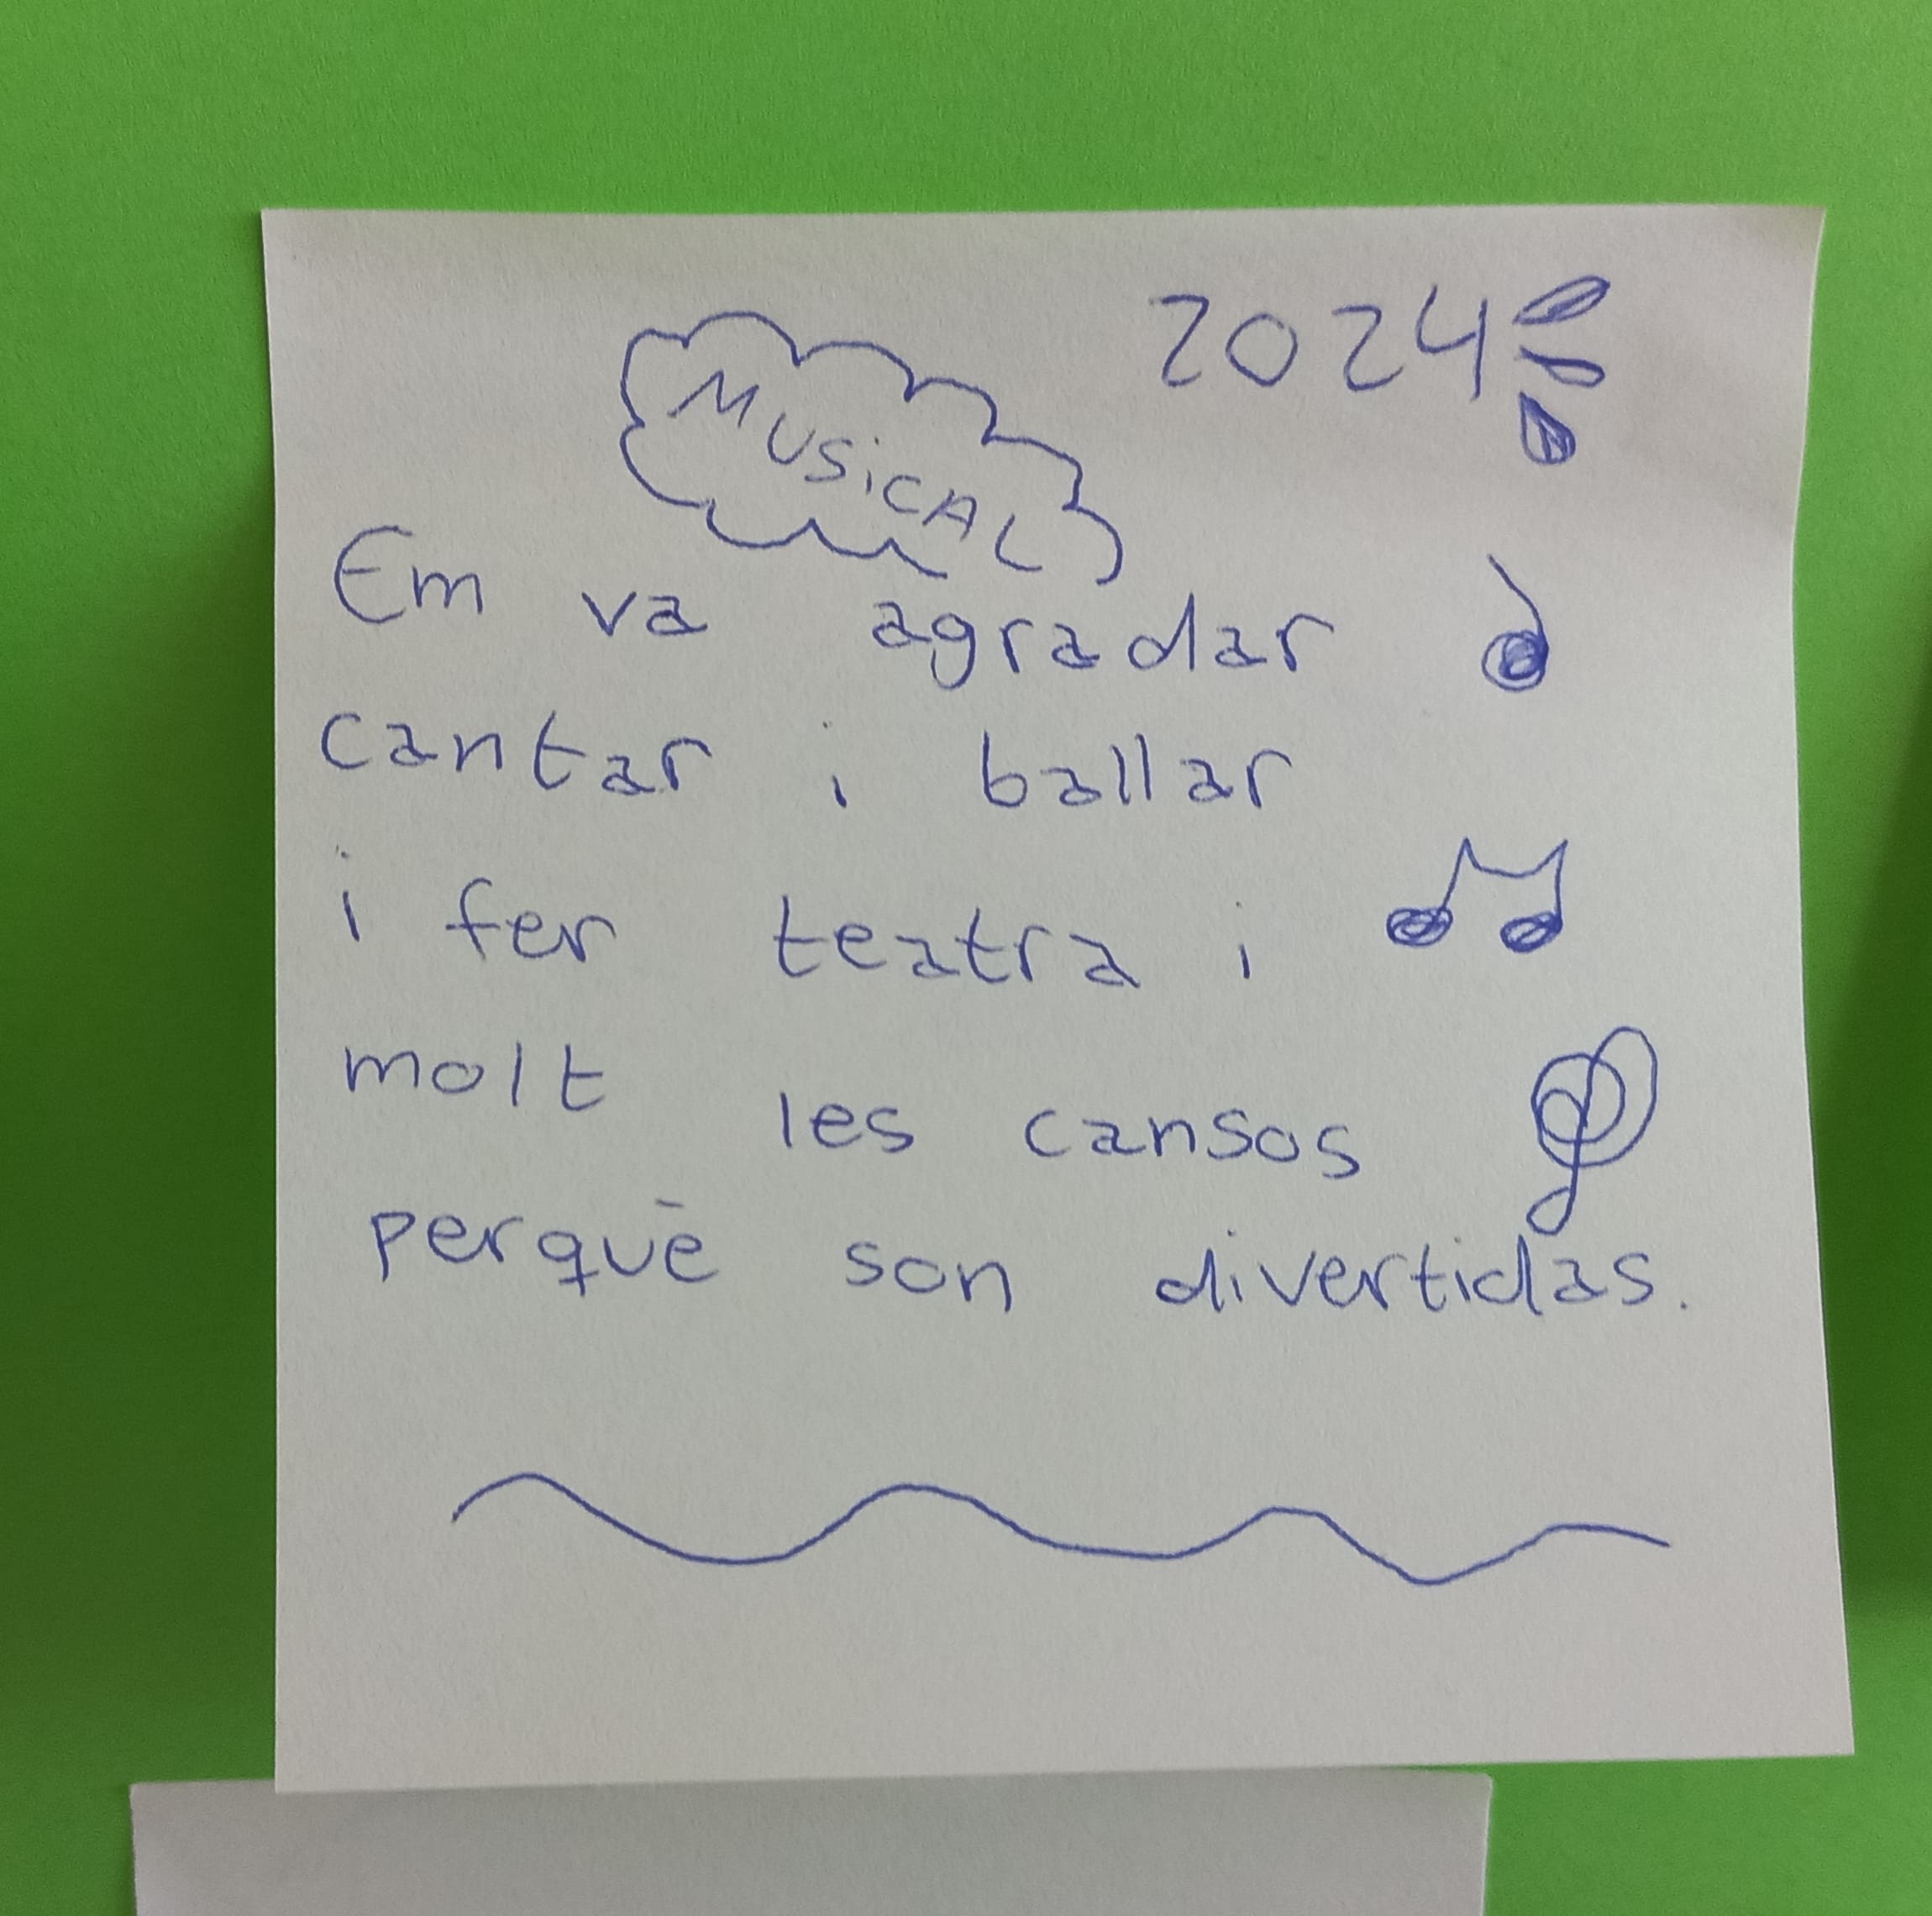 2024
MUSICAL
Em va agradar
cantar i ballar
i fer teatra i
molt les cansos
perquè son divertidas.